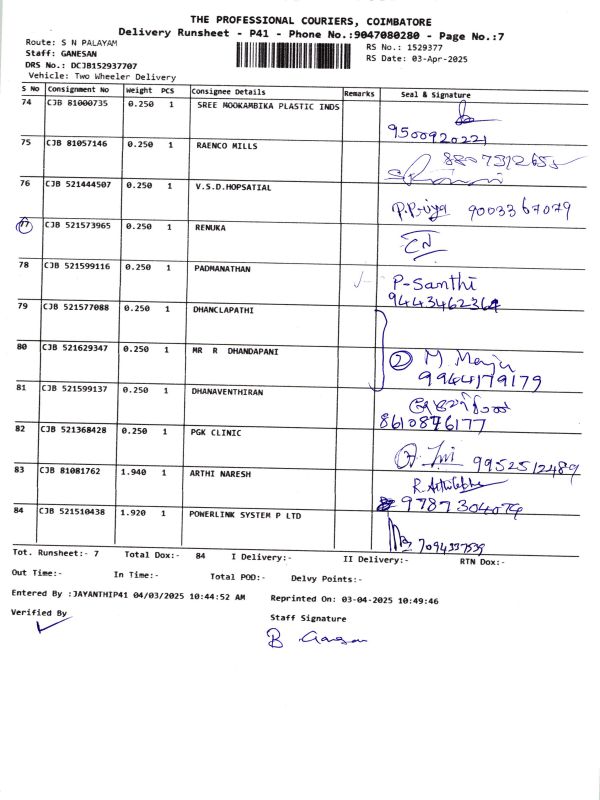 THE PROFESSIONAL COURIERS, COIMBATORE
Delivery Runsheet - P41 - Phone No.:9047080280 - Page No.:7
Route: S N PALAYAM
RS No.: 1529377
Staff: GANESAN
RS Date: 03-Apr-2025
DRS No.: DCJB152937707
Vehicle: Two Wheeler Delivery
S No Consignment No Weight PCS Consignee Details Remarks Seal & Signature
74 CJB 81000735 0.250 1 SREE MOOKAMBIKA PLASTIC INDS
9500920221
75 CJB 81057146 0.250 1 RAENCO MILLS
76 CJB 521444507 0.250 1 V.S.D.HOPSATIAL P.Priya 9003367079
77 CJB 521573965 0.250 1 RENUKA
78 CJB 521599116 0.250 1 PADMANATHAN P-Santhi
9443462364
79 CJB 521577088 0.250 1 DHANCLAPATHI
80 CJB 521629347 0.250 1 MR R DHANDAPANI 2 M
9964179179
81 CJB 521599137 0.250 1 DHANAVENTHIRAN
8610876177
82 CJB 521368428 0.250 1 PGK CLINIC 9952512489
83 CJB 81081762 1.940 1 ARTHI NARESH R.
9787304079
84 CJB 521510438 1.920 1 POWERLINK SYSTEM P LTD
7094337539
Tot. Runsheet:- 7 Total Dox:- 84 I Delivery:- II Delivery:- RTN Dox:-
Out Time:- In Time:- Total POD:- Delvy Points:-
Entered By :JAYANTHIP41 04/03/2025 10:44:52 AM Reprinted On: 03-04-2025 10:49:46
Verified By
Staff Signature
B Ganesan